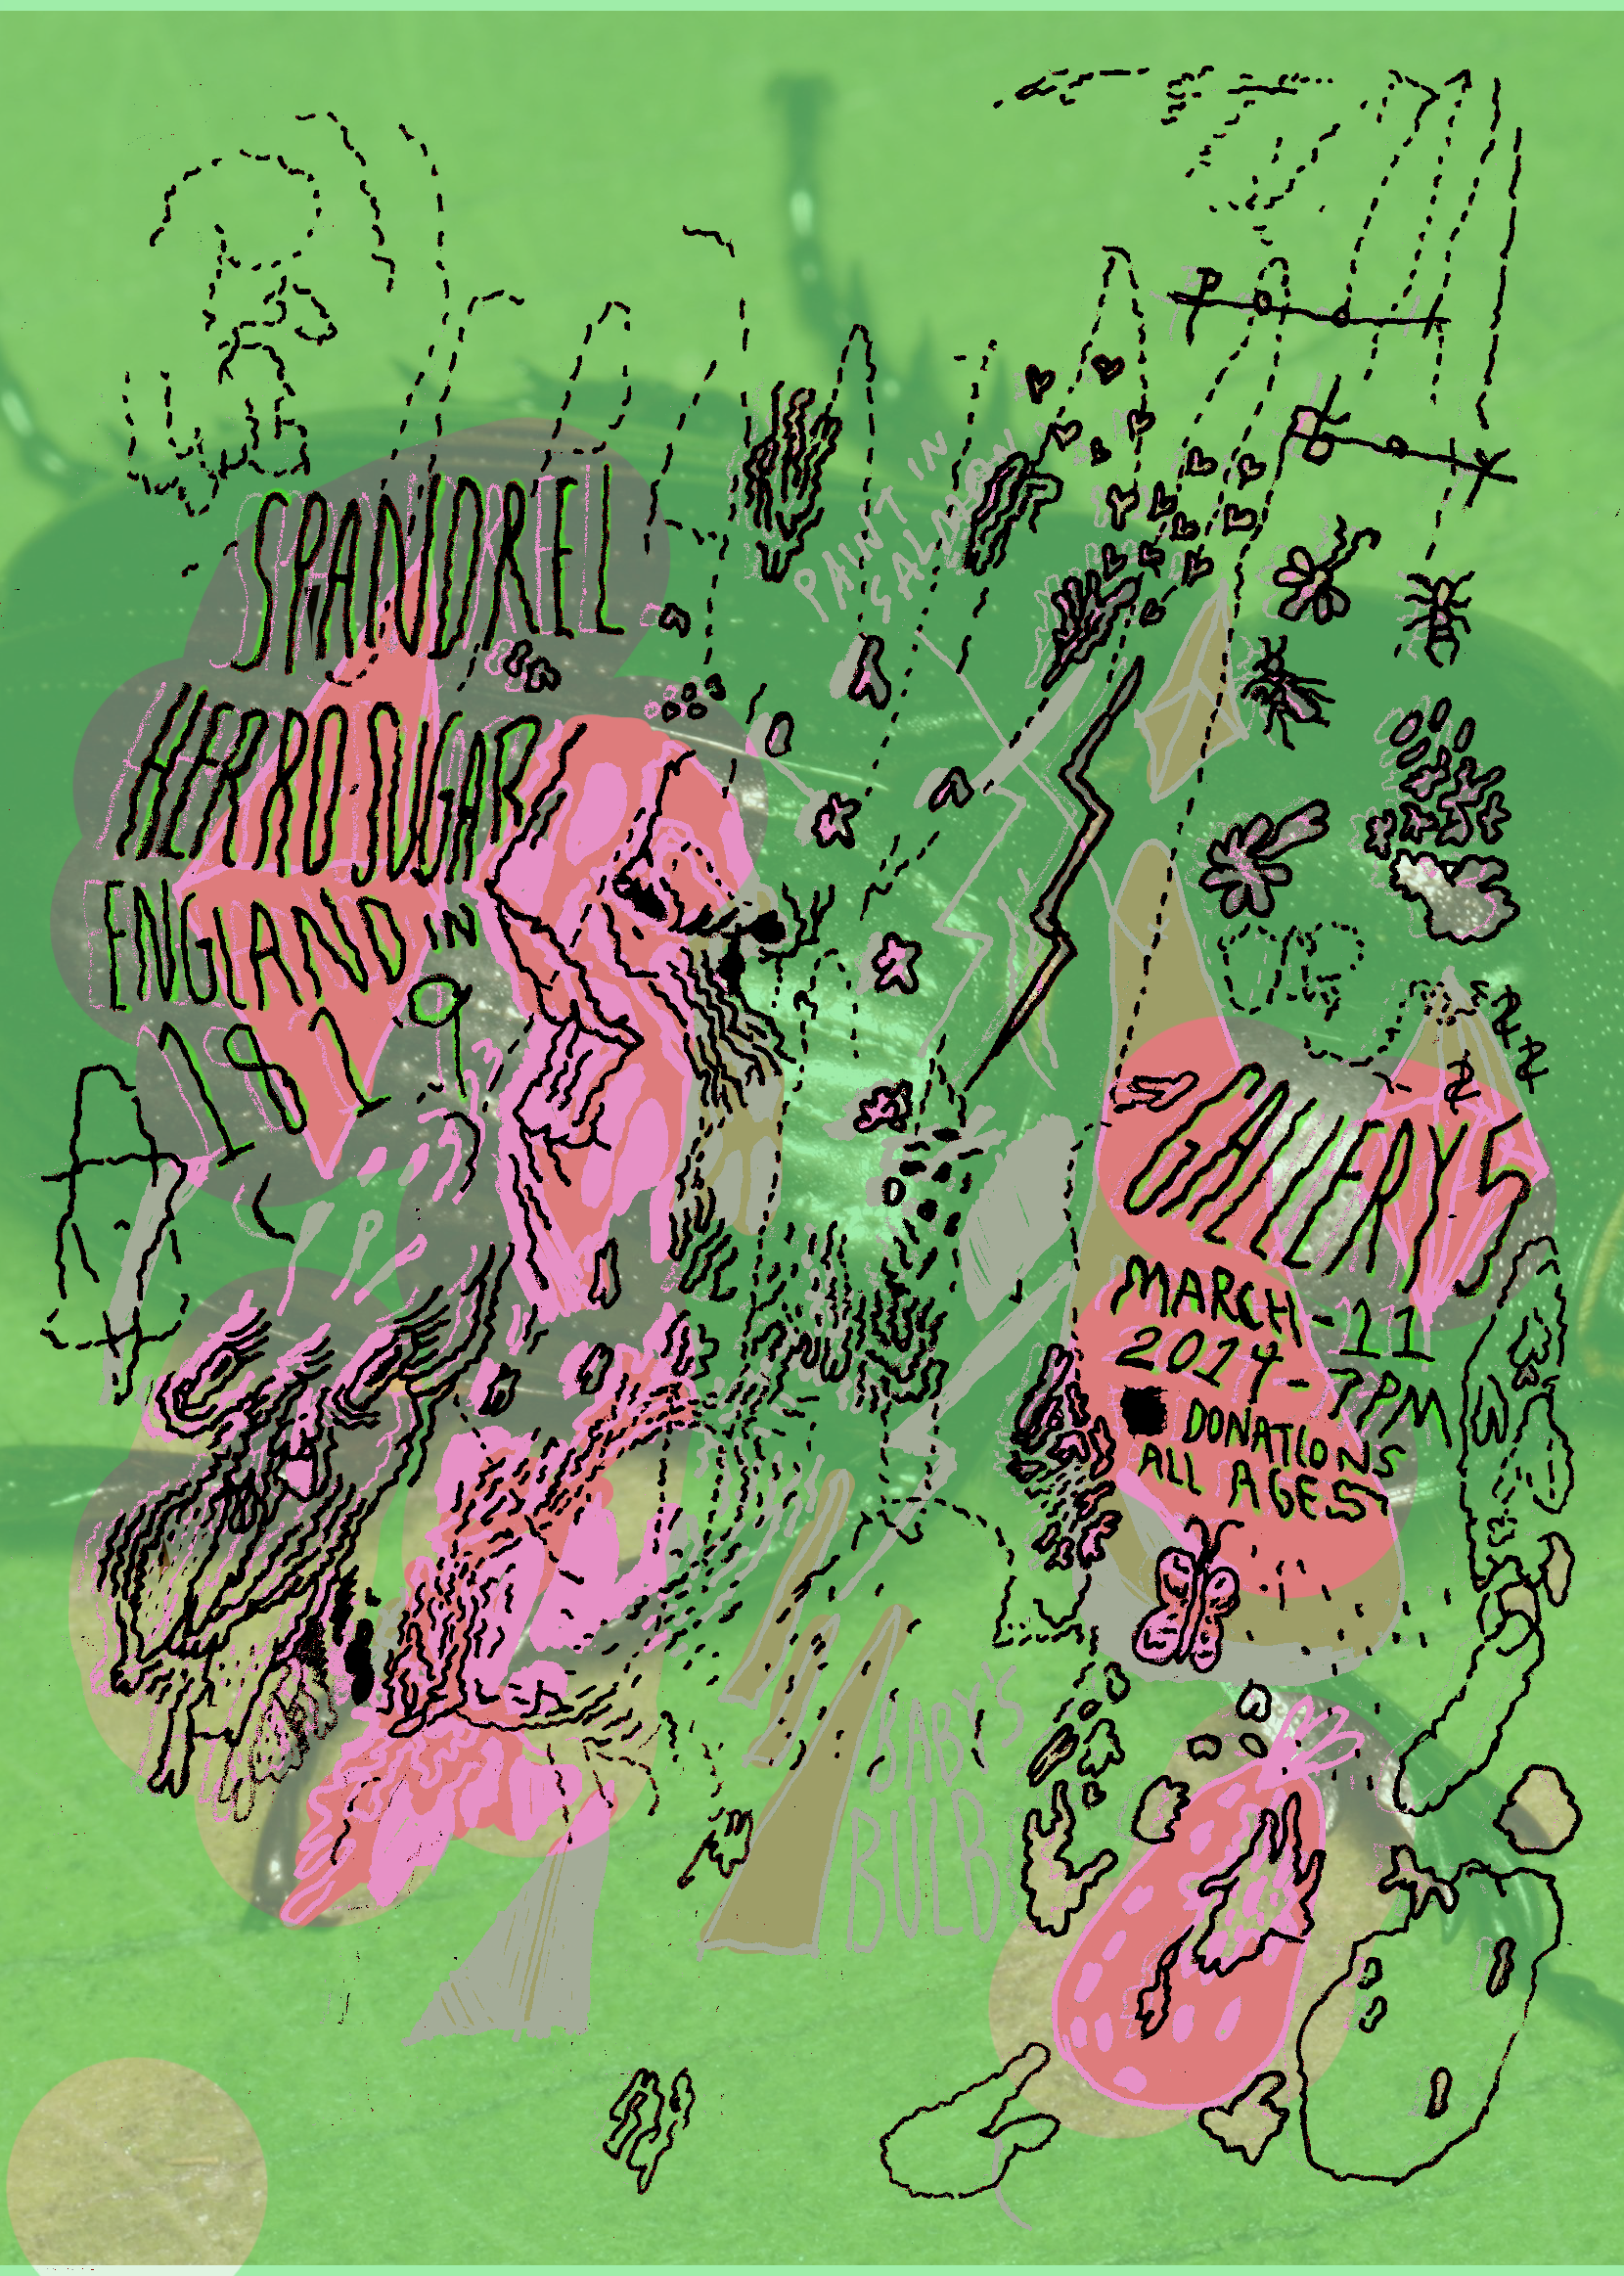 SPANDREL
HERRO SUGAR
ENGLAND IN
1819
PAINT IN
SALMON
GALLERY 5
MARCH - 11
2014 - 7PM
DONATIONS
ALL AGES
BABY'S
BULB